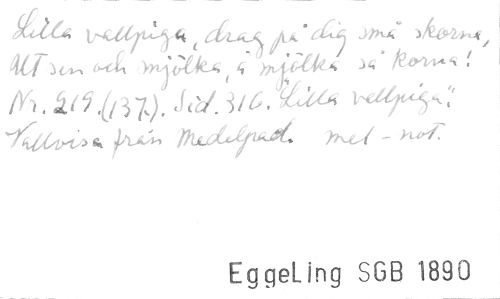 Lilla vallpiga, drag på dig små skorna,
Ut sen och mjölka, å mjölka så korna!
Nr. 219.(137.). Sid. 316. "Lilla vallpiga":
Vallvisa från Medelpad. mel-not.
EggeLing SGB 1890